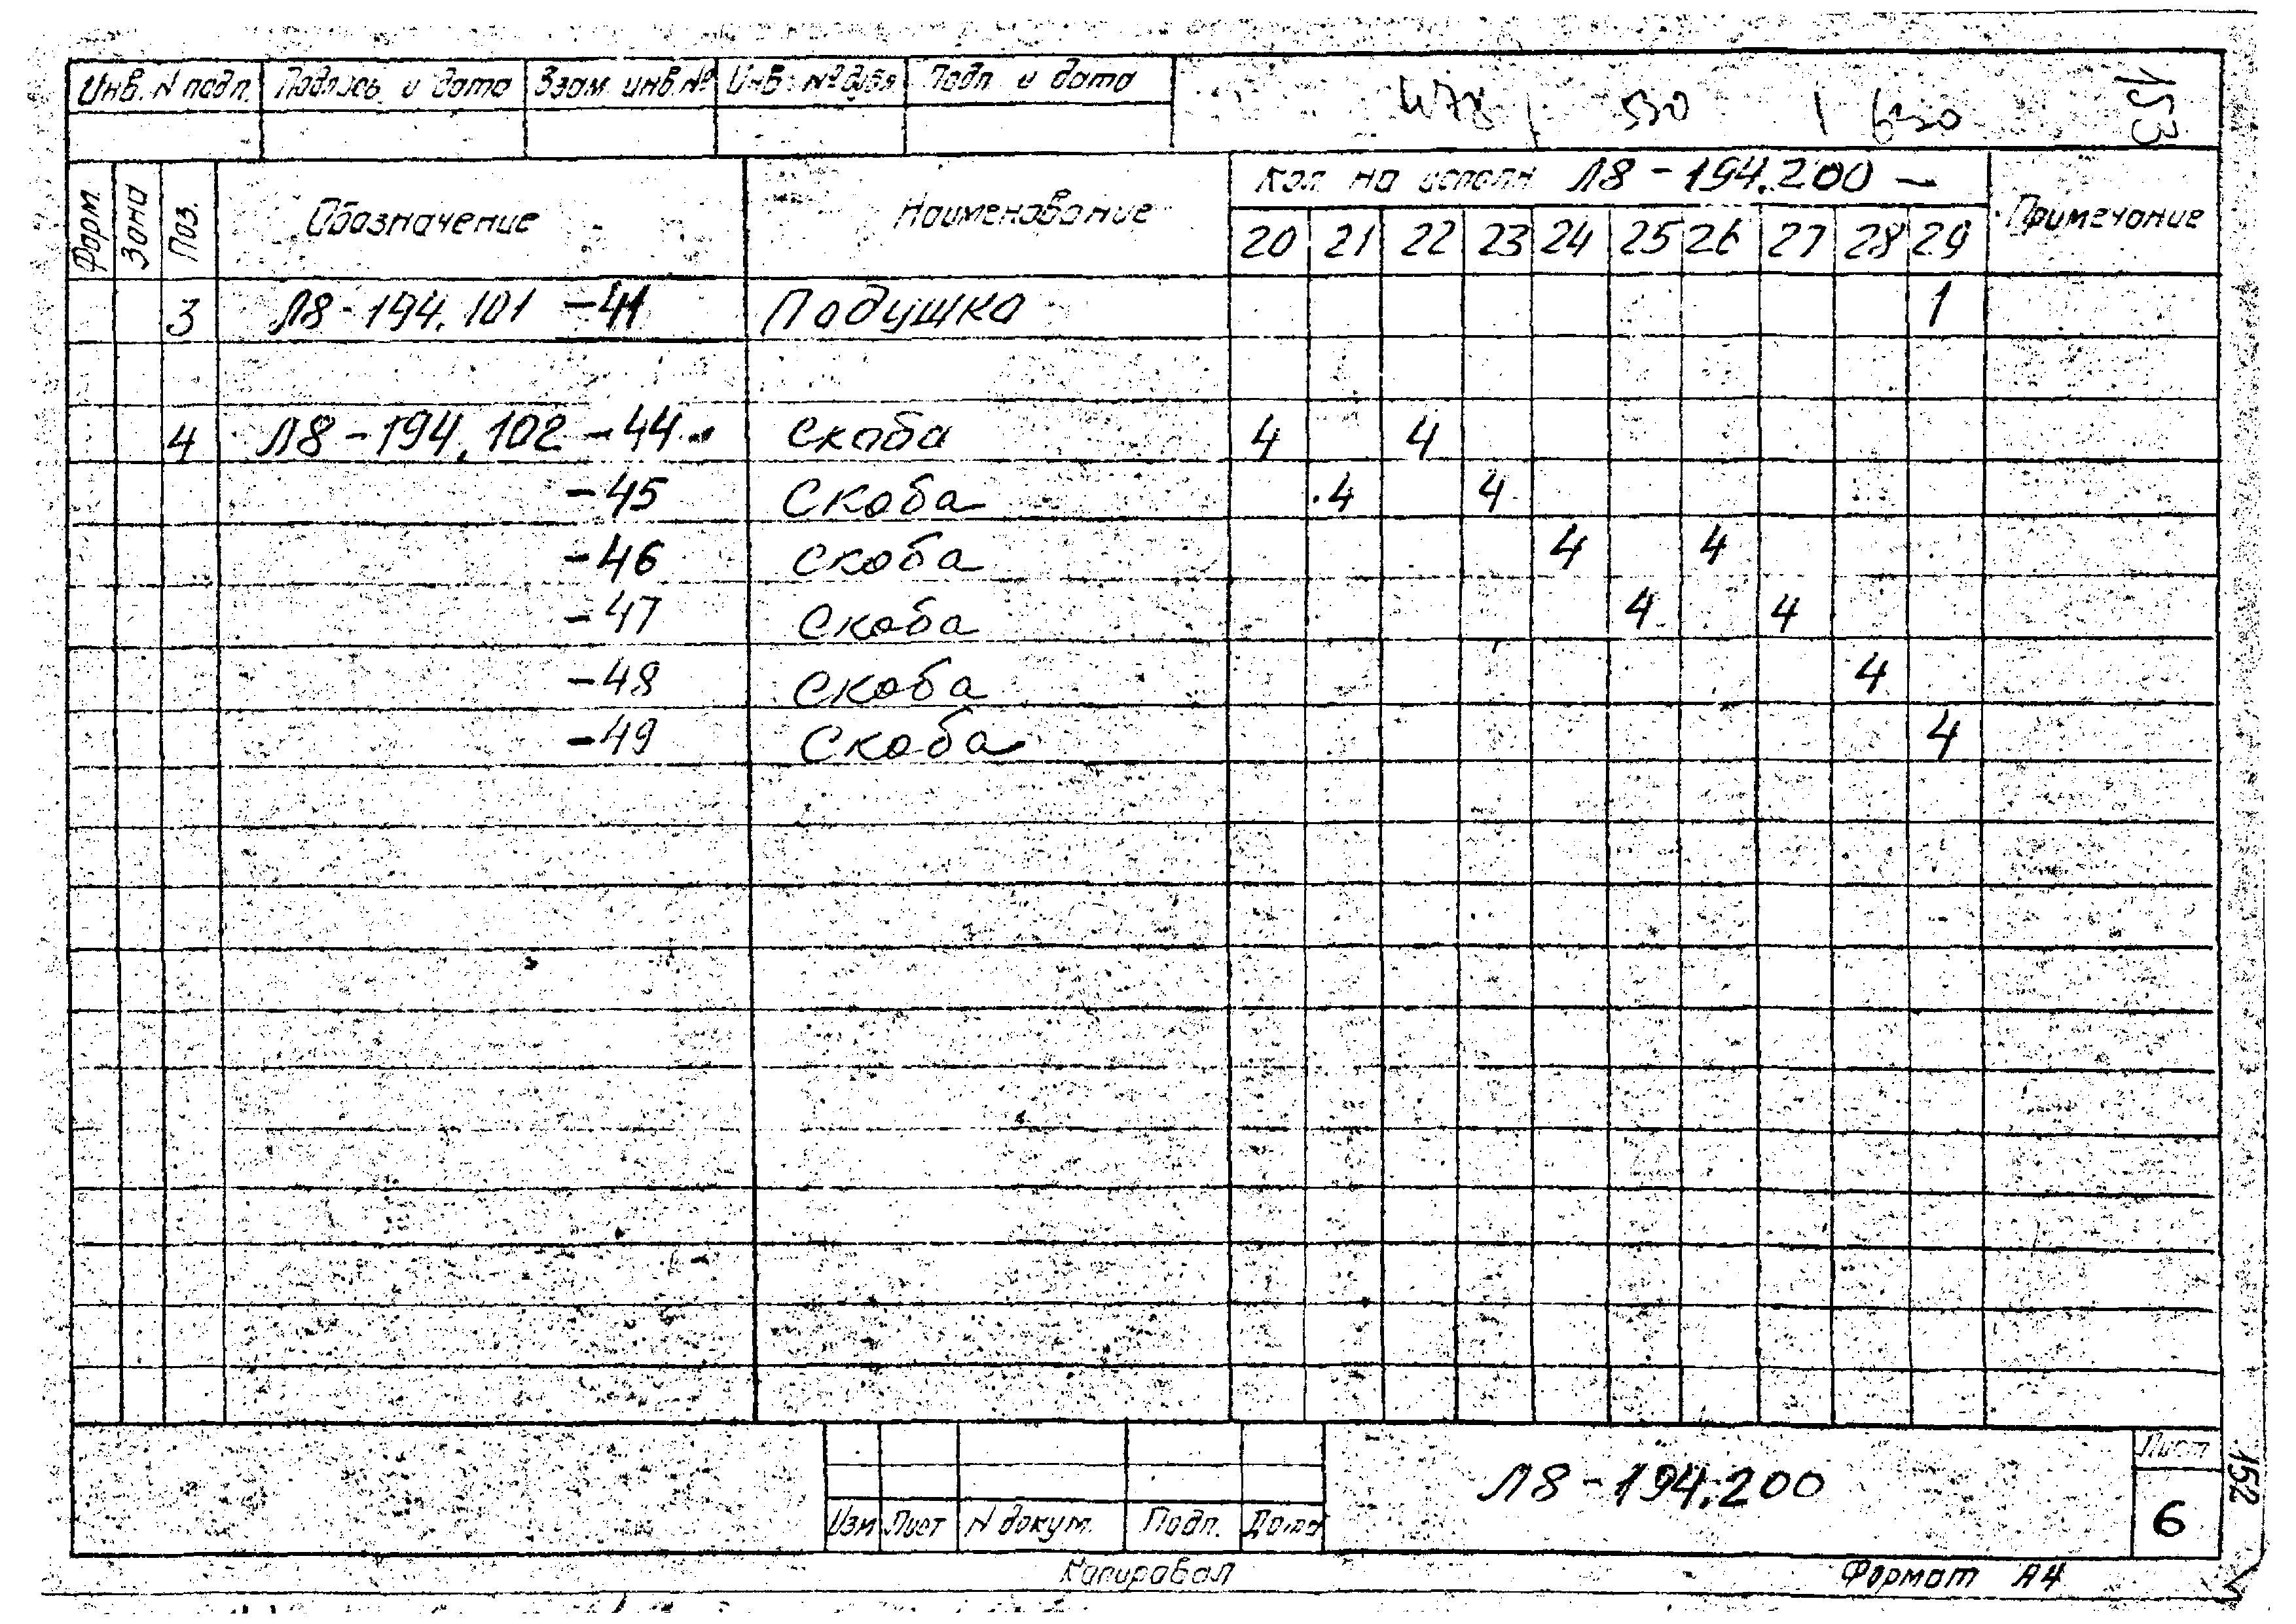 Инв. N подп. Подпись и дата Взам. инв. № Инв. № дубл. Подп. и дата
530
Форм. Зона Поз. Обозначение Наименование Кол. на исполн. Л8-194.200 - Примечание
20 21 22 23 24 25 26 27 28 29
3 Л8-194.101 -41 Подушка 1
4 Л8-194.102 -44 Скоба 4 4
-45 Скоба 4 4
-46 Скоба 4 4
-47 Скоба 4 4
-48 Скоба 4
-49 Скоба 4
Л8-194.200
Лист
6
Изм Лист N докум. Подп. Дата
Копировал Формат А4
152